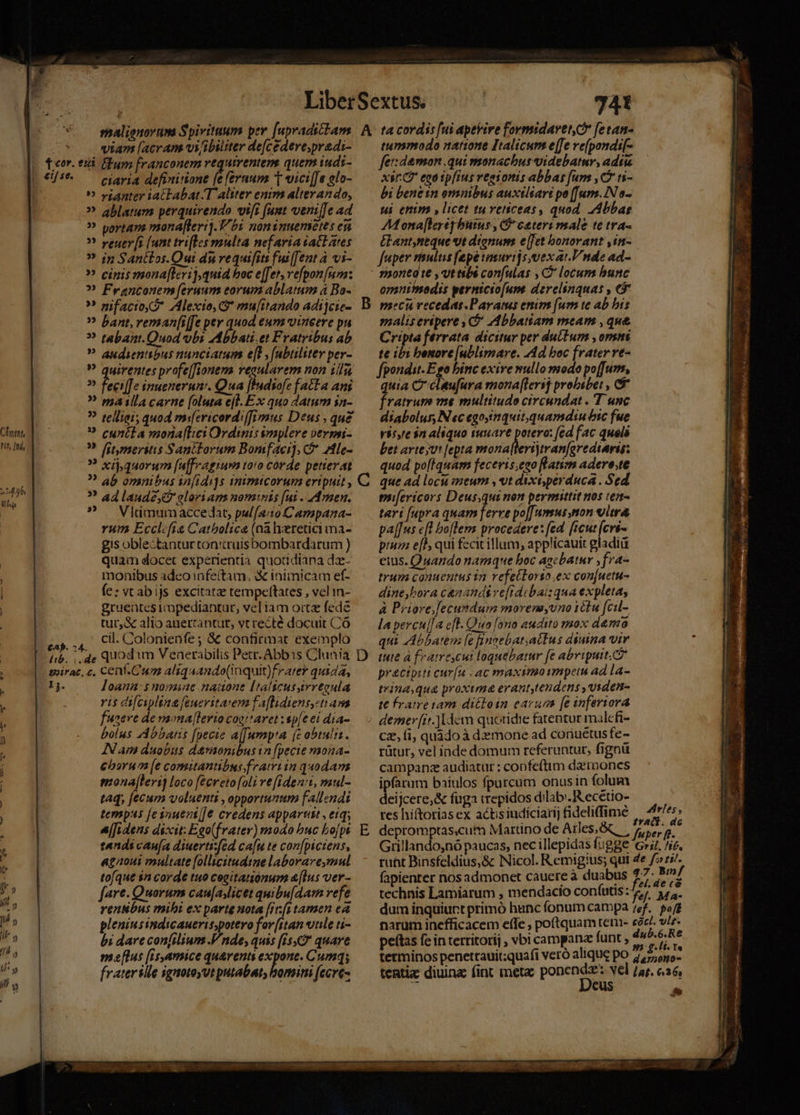 LiberSextus. 741
malignorum Spirituum per supradictam
viam sacram visibiliter descēdere, prædi-
ctum franconem requirentem quem iudi-
ciaria definitione se seruum † vicisse glo-
rianter iactabat. Taliter enim alterando,
ablatum perquirendo visi sunt venisse ad
portam monasterij. Vbi non inuenietes eū
reuersi sunt tristes multa nefaria iactātes
in Sanctos. Qui dū requisiti fuissent à vi-
cinis monasterij, quid hoc esset, responsum:
Franconem seruum eorum ablatum à Bo-
nifacio, & Alexio, & musitando adijcie-
bant, remansisse per quod eum vincere pu
tabant. Quod vbi Abbati et Fratribus ab
audientibus nunciatum est, subtiliter per-
quirentes professionem regularem non illū
fecisse inuenerunt. Qua studiose facta ani
ma illa carne soluta est. Ex quo datum in-
telligi, quod misericordissimus Deus, que
cuncta monastici Ordinis implere permi-
sit, meritis Sanctorum Bonifacij, & Ale-
xij, quorum suffragium toto corde petierat
ab omnibus insidijs inimicorum eripuit,
ad laudē, & gloriam nominis sui. Amen.
Vltimum accedat, pulsatio Campana-
rum Ecclesia Catholica (nā hæretici ma-
gis oblectantur tonitruis bombardarum)
quam docet experientia quotidiana dæ-
monibus adeo infestam, & inimicam es-
se: vt ab ijs excitatæ tempestates, vel in-
gruentes impediantur, vel iam ortæ sedē
tur, & alio auertantur, vt rectè docuit Cō
cil. Coloniense; & confirmat exemplo
quod iam Venerabilis Petr. Abbas Clunia
cens. Cum aliquando (inquit) frater quidā,
Ioannes nomine natione Italicus, irregula
ris disciplinæ seueritatem fastidiens, etiam
fugere de monasterio cogitaret: ipse ei dia-
bolus Abbatis specie assumpta se obtulit.
Nam duobus dæmonibus in specie mona-
chorum se comitantibus, fratri in quodam
monasterij loco secreto soli residenti, mul-
taq; secum voluenti, opportunum fallendi
tempus se inuenisse credens apparuit, eiq;
assidens dixit: Ego (frater) modo huc hospi
tandi causa diuerti: sed casu te conspiciens,
agnoui multate sollicitudine laborare, mul
tosque in corde tuo cogitationum æstus ver-
sare. Quorum causas, licet quibusdam refe
rentibus mihi ex parte nota sint: si tamen ea
plenius indicaueris, potero forsitan vtile ti-
bi dare consilium. Vnde, quis sis, & quare
mæstus sis, amice quærenti expone. Cumq;
frater ille ignoto, vt putabat, homini secre-
ta cordis sui aperire formidaret, & se tan-
tummodo natione Italicum esse respondis-
set: dæmon, qui monachus videbatur, adiu
xit: & ego ipsius regionis abbas sum, & ti-
bi bene in omnibus auxiliari possum. No-
ui enim, licet tu reticeas, quod Abbas
Monasterij huius, & cæteri malè te tra-
ctant, neque vt dignum esset honorant, in-
super multis sæpe iniurijs, vexāt. Vnde ad-
moneo te, vt tibi consulas, & locum hunc
omnimodis perniciosum derelinquas, &
mecū recedas. Paratus enim sum te ab his
malis eripere, & Abbatiam meam, quæ
Cripta ferrata dicitur perductum, omni
te ibi honore sublimare. Ad hoc frater re-
spondit. Ego hinc exire nullo modo possum,
quia & clausura monasterij prohibet, &
fratrum me multitudo circundat. Tunc
diabolus, Nec ego, inquit, quamdiu hic fue
ris, te in aliquo iuuare potero: sed fac quali
bet arte, vt septa monasterij transgrediaris:
quod postquam feceris, ego statim adero, te
que ad locū meum, vt dixi, perducā. Sed
misericors Deus, qui non permittit nos ten-
tari supra quam ferre possumus, non vltra
passus est hostem procedere: sed sicut scri-
ptum est, qui fecit illum, applicauit gladiū
eius. Quando namque hoc agebatur, fra-
trum conuentus in refectorio, ex consuetu-
dine, hora cœnandi residebat: qua expleta,
à Priore, secundum morem, vno ictu scil-
la percussa est. Quo sono audito mox dæmō
qui Abbatem se fingebat, actus diuina vir
tute à fratre, cui loquebatur se abripuit, &
præcipiti cursu, ac maximo impetu ad la-
trina, quæ proxime erant, tendens, viden-
te fratre iam dicto in earum se inferiora
demersit. Idem quotidie fatentur malefi-
cæ, si, quādo à dæmone ad conuētus fe-
rūtur, vel inde domum referuntur, signū
campanæ audiatur: confestim dæmones
ipsarum baiulos spurcum onus in solum
deijcere, & fuga trepidos dilabi. Recētio-
res historias ex actis iudiciarij fidelissimè
depromptas, cum Martino de Arles, &
Grillando, nō paucas, nec illepidas sugge
runt Binsfeldius, & Nicol. Remigius; qui
sapienter nos admonet cauere à duabus
technis Lamiarum, mendacio confutis:
dum inquiunt primò hunc sonum campa
narum inefficacem esse, postquam tem-
pestas se in territorij, vbi campanæ sunt,
terminos penetrauit: quasi verò alique po
tentiæ diuinæ sint metæ ponendæ: vel
Deus